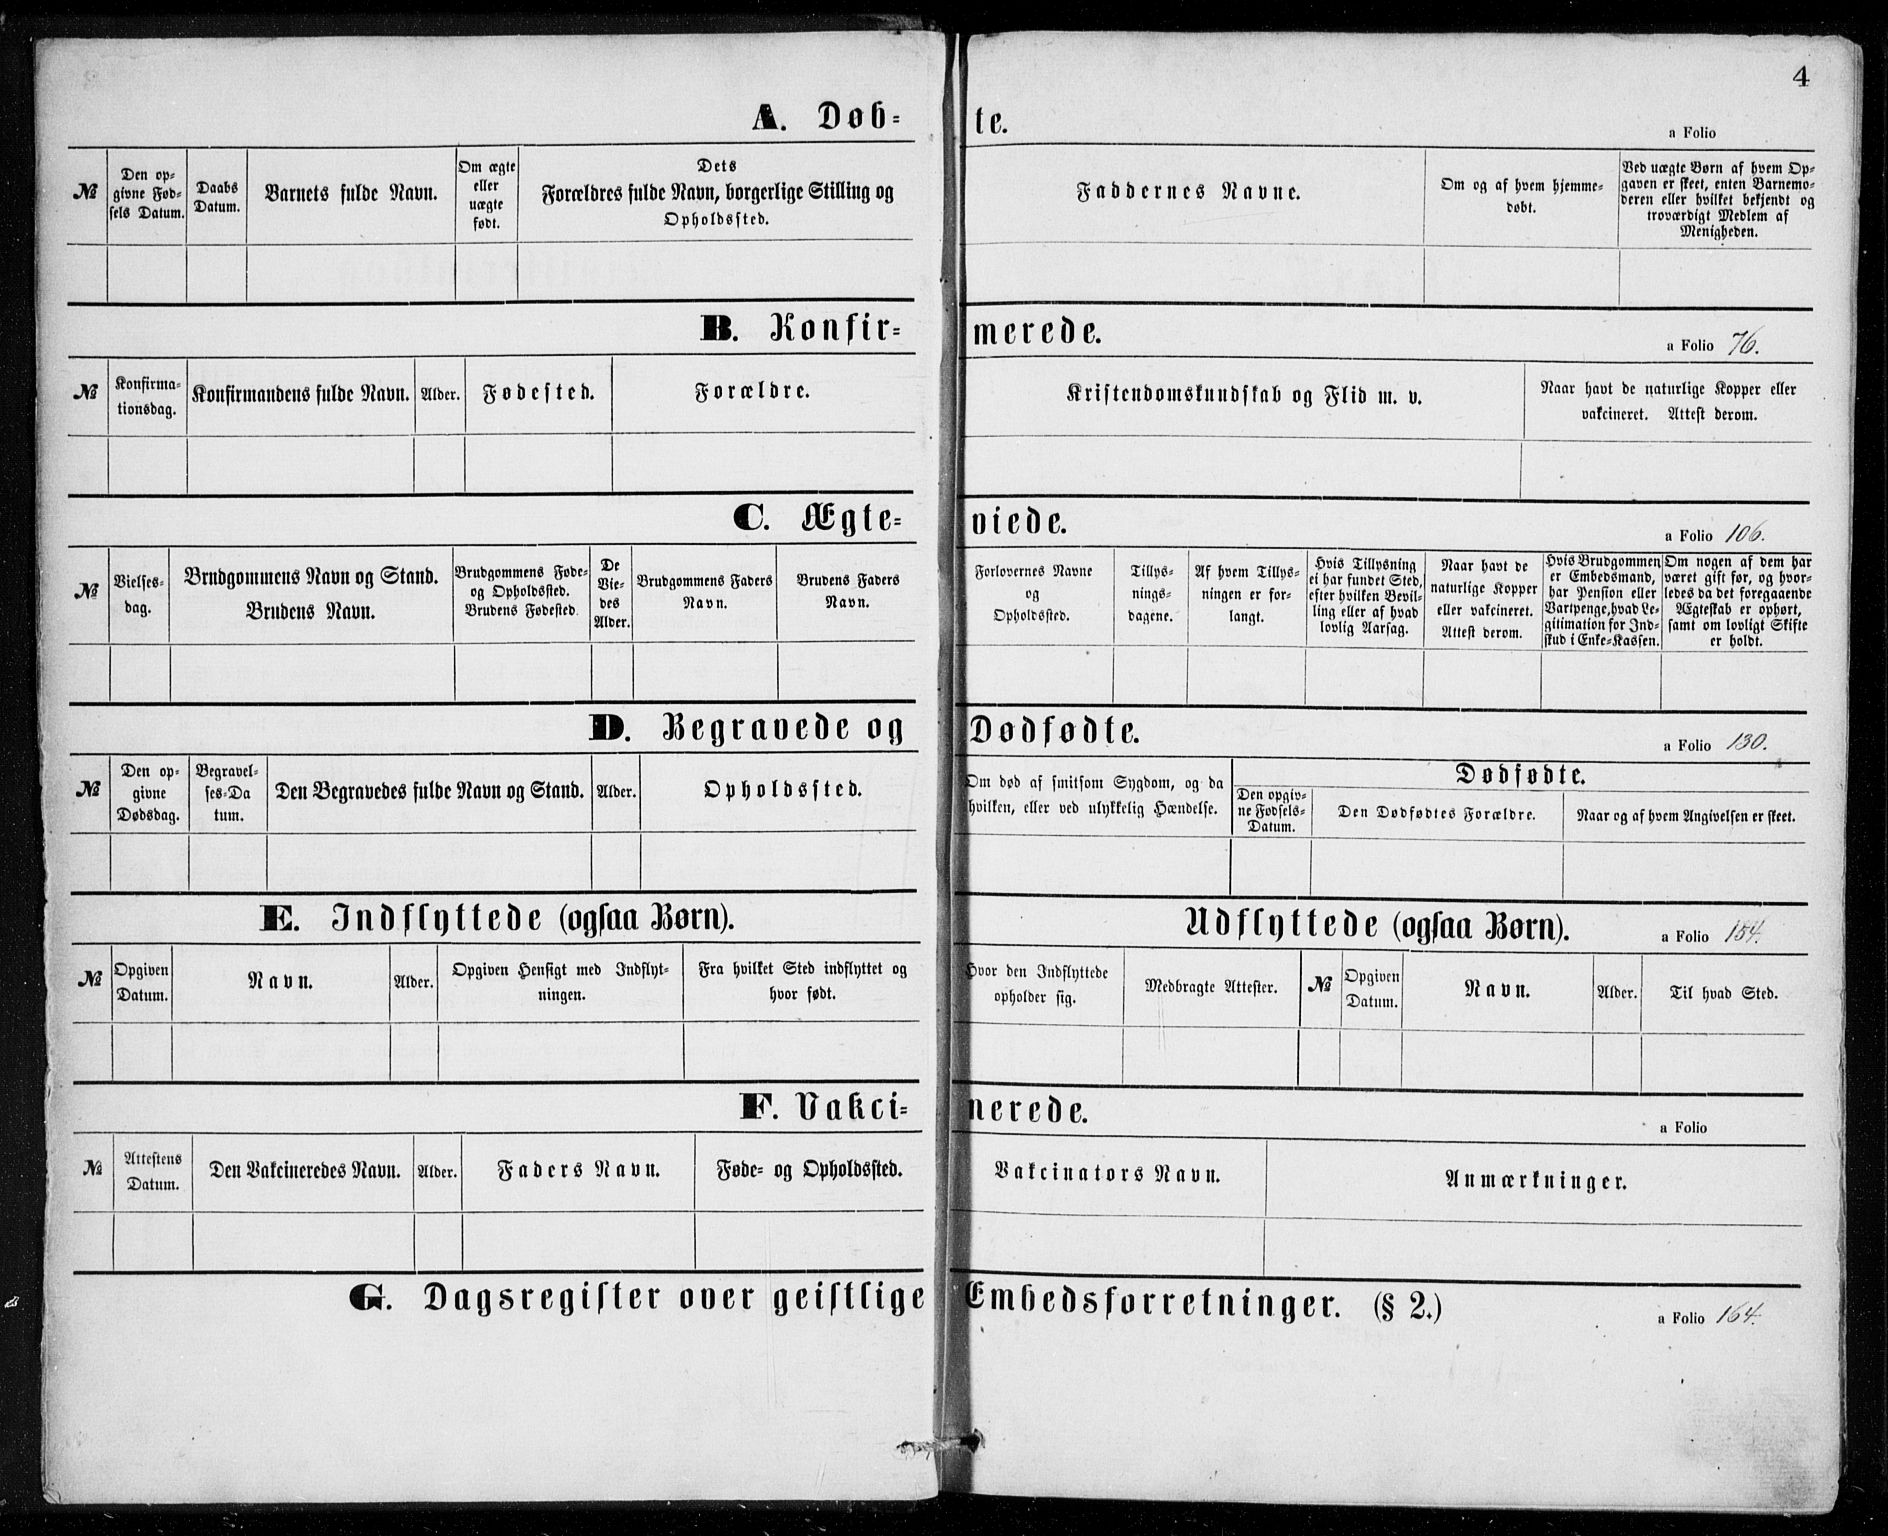 4
A. Døb- te.
a Folio
№
Den op-
givne Fød-
sels Datum.
Daabs
Datum.
Barnets fulde Navn.
Om ægte
eller
uægte
født.
Dets
Forældres fulde Navn, borgerlige Stilling og
Opholdssted.
Faddernes Navne.
Om og af hvem hjemme-
døbt.
Ved uægte Børn af hvem Op-
gaven er skeet, enten Barnemo-
deren eller hvilket bekjendt og
troværdigt Medlem af
Menigheden.
B. Konfir- merede.
a Folio 76.
№
Konfirma-
tionsdag.
Konfirmandens fulde Navn.
Alder.
Fødested.
Forældre.
Kristendomskundskab og Flid m. v.
Naar havt de naturlige Kopper eller
vakcineret. Attest derom.
C. Ægte- viede.
a Folio 106.
№
Vielses-
dag.
Brudgommens Navn og Stand.
Brudens Navn.
Brudgommens Føde-
og Opholdssted.
Brudens Fødested.
De
Vie-
des
Alder.
Brudgommens Faders
Navn.
Brudens Faders
Navn.
Forlovernes Navne
og
Opholdssted.
Tillys-
nings-
dagene.
Af hvem Tillys-
ningen er for-
langt.
Hvis Tillysning
ei har fundet Sted,
efter hvilken Bevil-
ling eller af hvad
lovlig Aarsag.
Naar havt de
naturlige Kopper
eller vakcineret.
Attest derom.
Hvis Brudgommen
er Embedsmand,
har Pension eller
Vartpenge, hvad Le-
gitimation for Ind-
skud i Enke-Kassen.
Om nogen af dem har
været gift før, og hvor-
ledes da det foregaaende
Ægteskab er ophørt,
samt om lovligt Skifte
er holdt.
D. Begravede og Dødfødte.
a Folio 130.
№
Den op-
givne
Dødsdag.
Begravel-
ses-Da
tum.
Den Begravedes fulde Navn og Stand.
Alder.
Opholdssted.
Om død af smitsom Sygdom, og da
hvilken, eller ved ulykkelig Hændelse.
Dødfødte.
Den opgiv-
ne Fødsels-
Datum.
Den Dødfødtes Forældre.
Naar og af hvem Angivelsen er skeet.
E. Indflyttede (ogsaa Børn).
Udflyttede (ogsaa Børn).
a Folio 154.
№
Opgiven
Datum.
Navn.
Alder.
Opgiven Hensigt med Indflyt-
ningen.
Fra hvilket Sted indflyttet og
hvor født.
Hvor den Indflyttede
opholder sig.
Medbragte Attester.
№
Opgiven
Datum.
Navn.
Alder.
Til hvad Sted.
F. Vakci- nerede.
a Folio
№
Attestens
Datum.
Den Vakcineredes Navn.
Alder.
Faders Navn.
Føde- og Opholdssted.
Vakcinators Navn.
Anmærkninger.
G. Dagsregister over geistlige Embedsforretninger. (§ 2.)
a Folio 164.